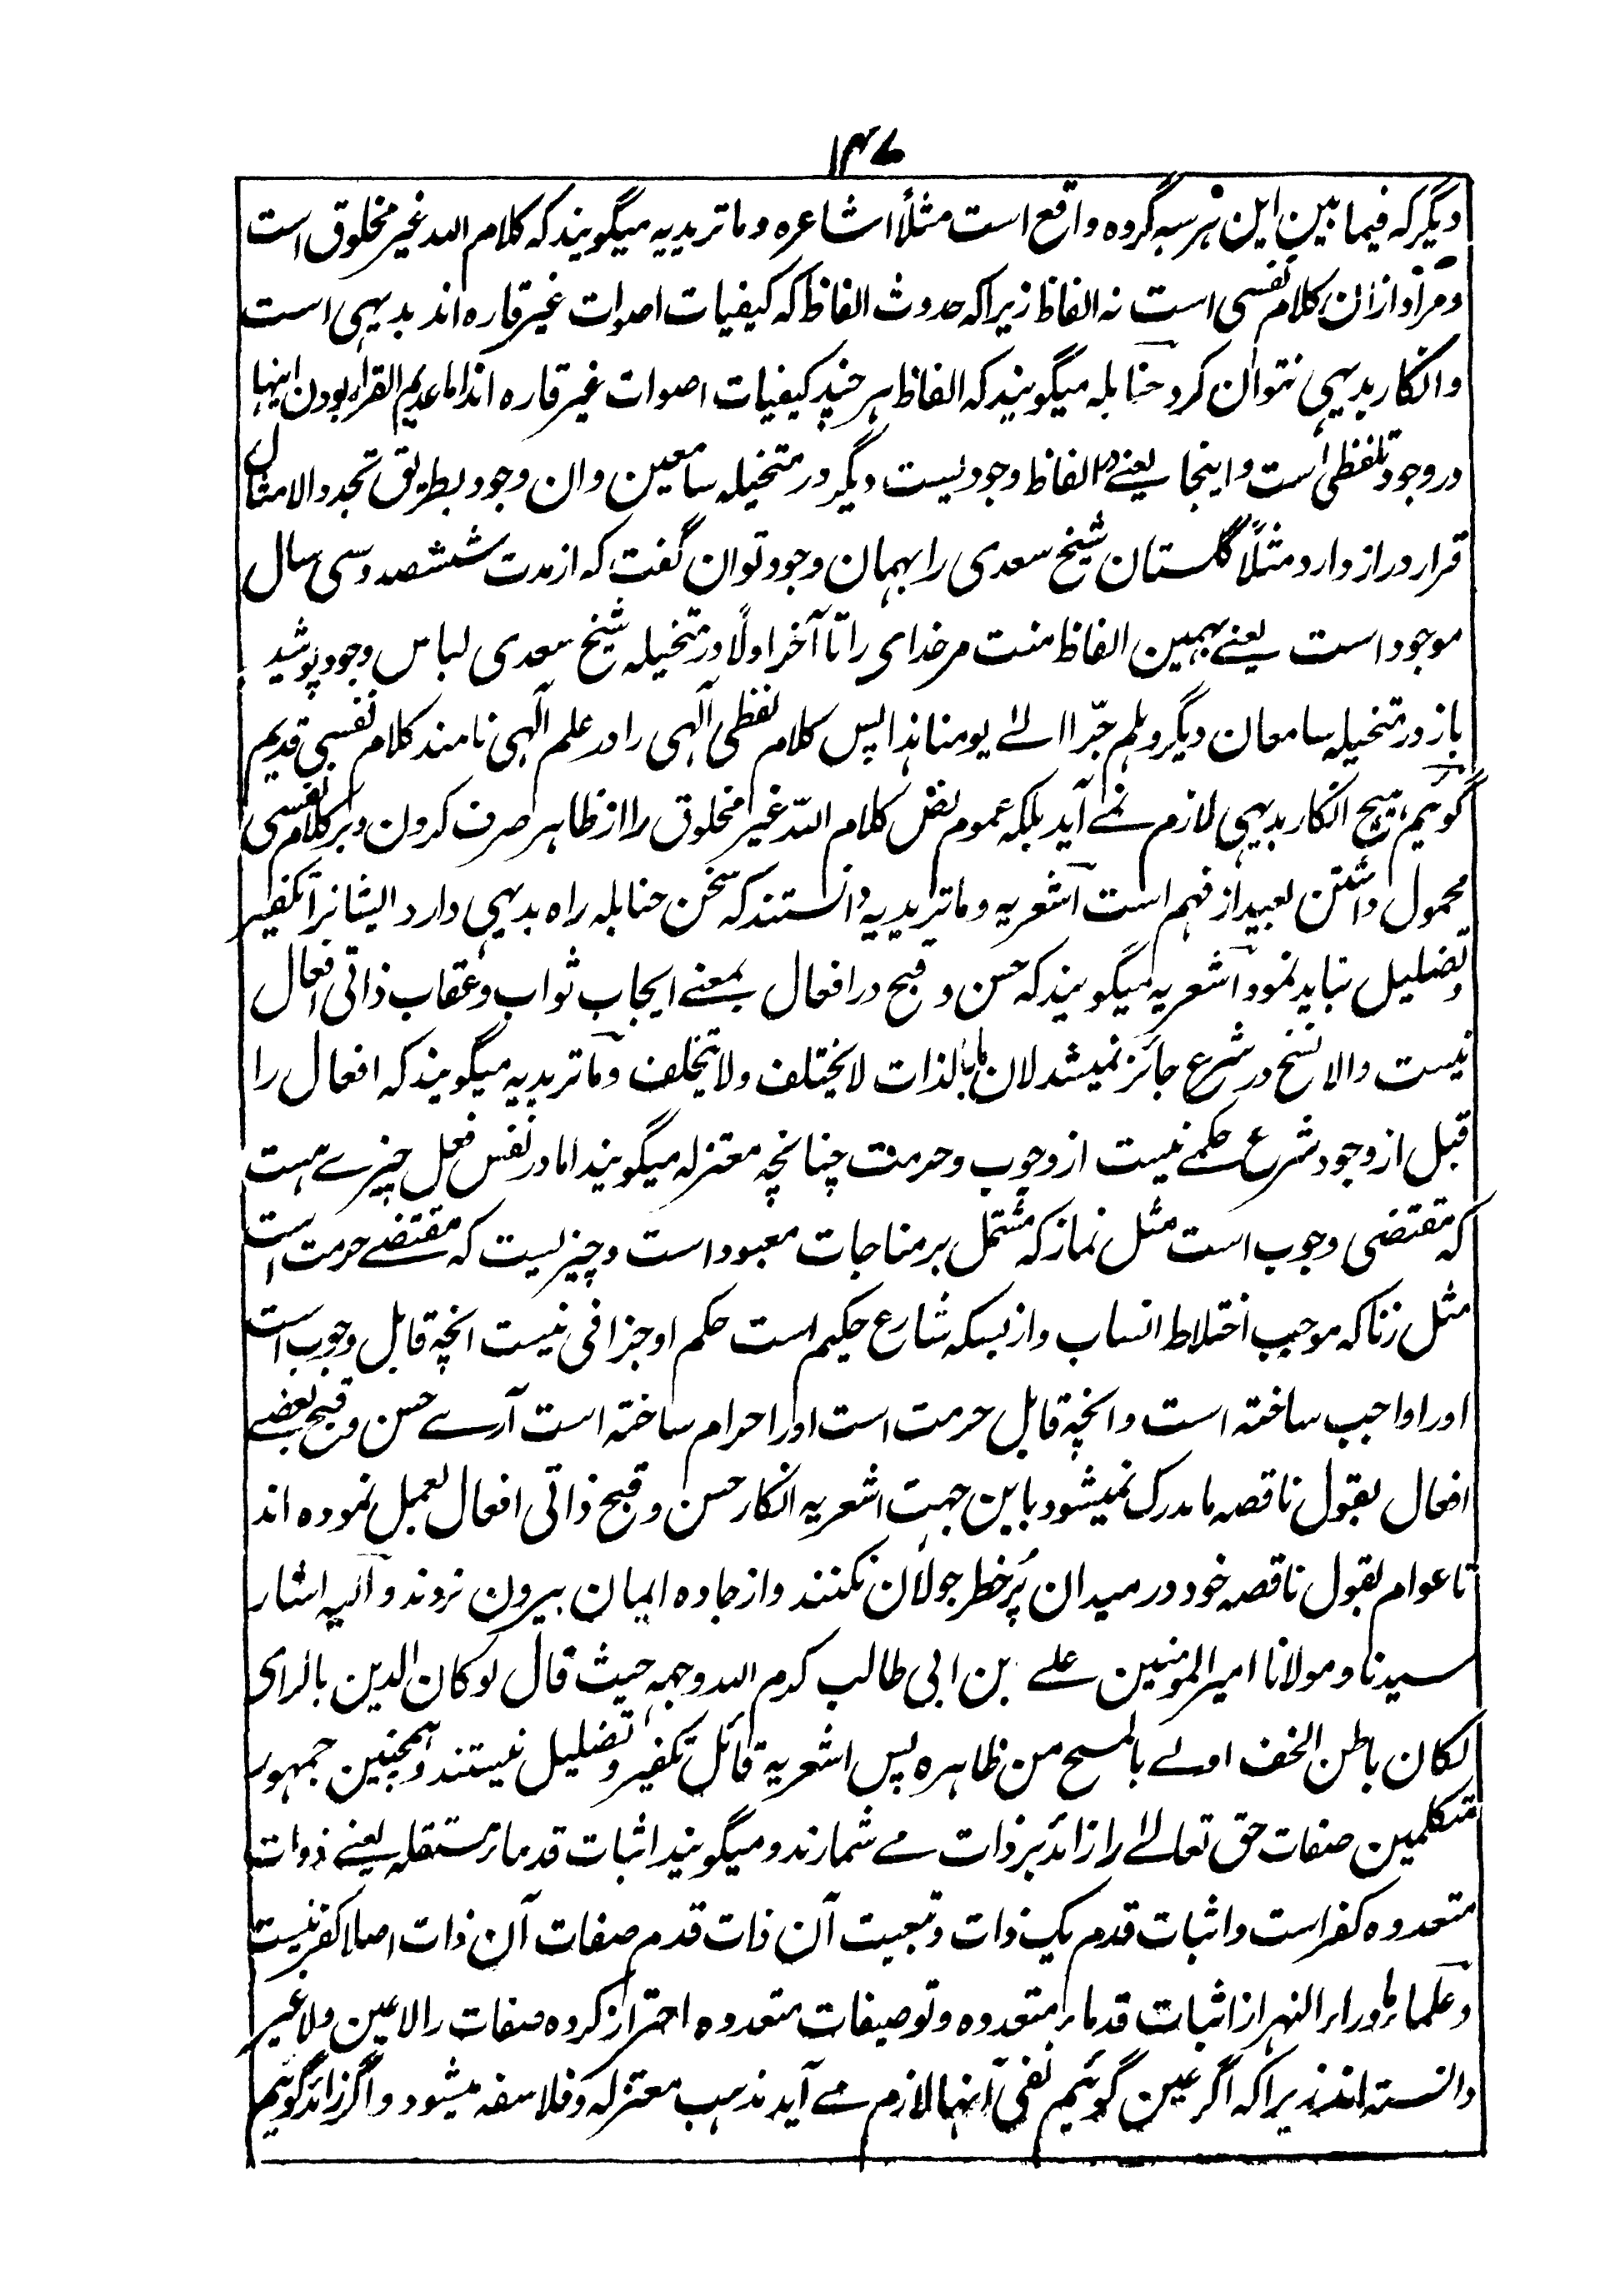 ۱۴۷
دیگر که فیما بین این هر سه گروه واقع است مثلاً اشاعره و ماتریدیه میگویند که کلام الله غیر مخلوق است
و مراد ازان کلام نفسی است نه الفاظ زیرا که حدوث الفاظ که کیفیات اصوات غیر قاره اند بدیهی است
و انکار بدیهی نتوان کرد حنابله میگویند که الفاظ هر چند کیفیات اصوات غیر قاره اند اما عدیم القرار بودن اینها
در وجود تلفظی است و اینجا یعنے در الفاظ وجودیست دیگر در متخیله سامعین و ان وجود بطریق تجدد الامثال
قرار دراز دارد مثلاً گلستان شیخ سعدی را بهمان وجود توان گفت که از مدت ششصد و سی سال
موجود است یعنے بهمین الفاظ منت مر خدای را تا آخر اولاً در متخیله شیخ سعدی لباس وجود پوشید
باز در متخیله سامعان دیگر و هلم جّرا الےٰ یومنا هٰذا پس کلام لفظی آلهی را در علم آلهی نامند کلام نفسی قدیم
گوئیم هیچ انکار بدیهی لازم نمے آید بلکه عموم لفظ کلام اللّه غیر مخلوق را از ظاهر صرف کردن و بر کلام نفسی
محمول داشتن بعید از فهم است آشعریه و ماتریدیه دانستند که سخن حنابله راه بدیهی دارد ایشانرا تکفیر
و تضلیل نباید نمود اشعریه میگویند که حسن و قبح در افعال بمعنے ایجاب ثواب و عقاب ذاتی افعال
نیست والا نسخ در شرع جائز نمیشد لان ما بالذات لا یختلف و لا یتخلف و ماتریدیه میگویند که افعال را
قبل از وجود شرع حکمے نیست از وجوب و حرمت چنانچه معتزله میگویند اما در نفس فعل چیزے هست
که مقتضی وجوب است مثل نماز که مشتمل بر مناجات معبود است و چیزیست که مقتضے حرمت است
مثل زنا که موجب اختلاط انساب و از بسکه شارع حکیم است حکم او جزافی نیست انچه قابل وجوب است
اورا واجب ساخته است و انچه قابل حرمت است اورا حرام ساخته است آرے حسن و قبح بعضے
افعال بعقول ناقصه ما مدرک نمیشود باین جهت اشعریه انکار حسن و قبح ذاتی افعال بعمل نموده اند
تا عوام بعقول ناقصه خود در میدان پُر خطر جولان نکنند و از جاده ایمان بیرون نروند و الیه اشار
سیدنا و مولانا امیر المومنین علے بن ابی طالب کرم الله وجهه حیث قال لو کان الدین بالرای
لکان باطن الخف اولے بالمسح من ظاهره پس اشعریة قائل تکفیر و تضلیل نیستند و همچنین جمهور
متکلمین صفات حق تعالےٰ را زائد بر ذات مے شمارند و میگویند اثبات قدماء مستقله یعنے ذوات
متعدده کفر است و اثبات قدم یک ذات و تبعیت آن ذات قدم صفات آن ذات اصلا کفر نیست
و علماء ماوراء النهر از اثبات قدماء متعدده و توصیفات متعدده احتراز کرده صفات را لا عین و لا غیر
دانسته اند زیرا که اگر عین گوئیم نفی آنها لازم مے آید مذهب معتزله و فلاسفه میشود و اگر زائد گوئیم